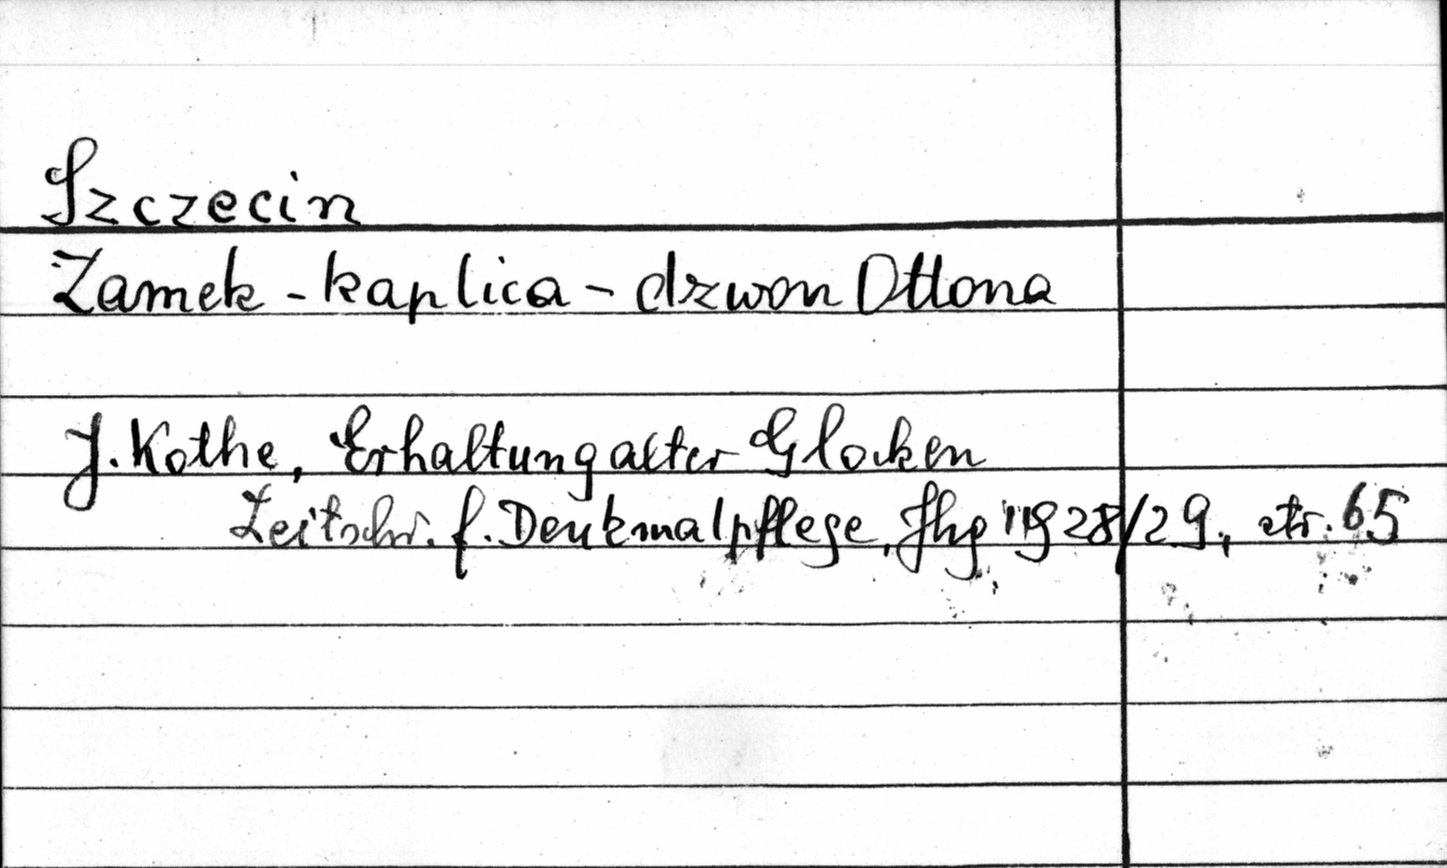 Szczecin
Zamek - kaplica - dzwon Ottona
J. Kothe, Erhaltung alter Glocken
Zeitschr. f. Denkmalpflege, Jhg 1928/29, str. 65